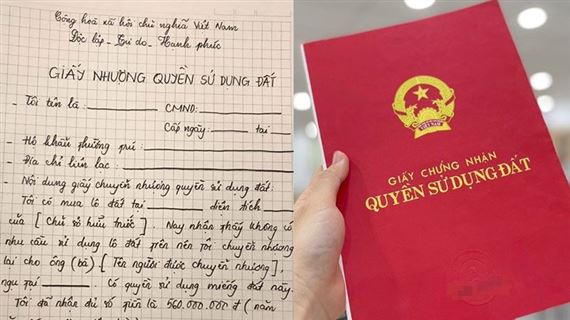 Cộng hoà xã hội chủ nghĩa Việt Nam
Độc lập - Tự do - Hạnh phúc
GIẤY NHƯỜNG QUYỀN SỬ DỤNG ĐẤT
- Tôi tên là: CMND:
Cấp ngày: tại
- Hộ khẩu thường trú:
- Địa chỉ liên lạc:
- Nội dung giấy chuyển nhượng quyền sử dụng đất:
Tôi có mua lô đất tại diện tích
của [Chủ sở hữu trước]. Nay nhận thấy không có
nhu cầu sử dụng lô đất trên nên tôi chuyển nhượng
lại cho ông (bà) [Tên người được chuyển nhượng],
ngụ tại Có quyền sử dụng miếng đất này.
Tôi đã nhận đủ số tiền là 560.000.000 đ (năm
VIỆT NAM
GIẤY CHỨNG NHẬN
QUYỀN SỬ DỤNG ĐẤT